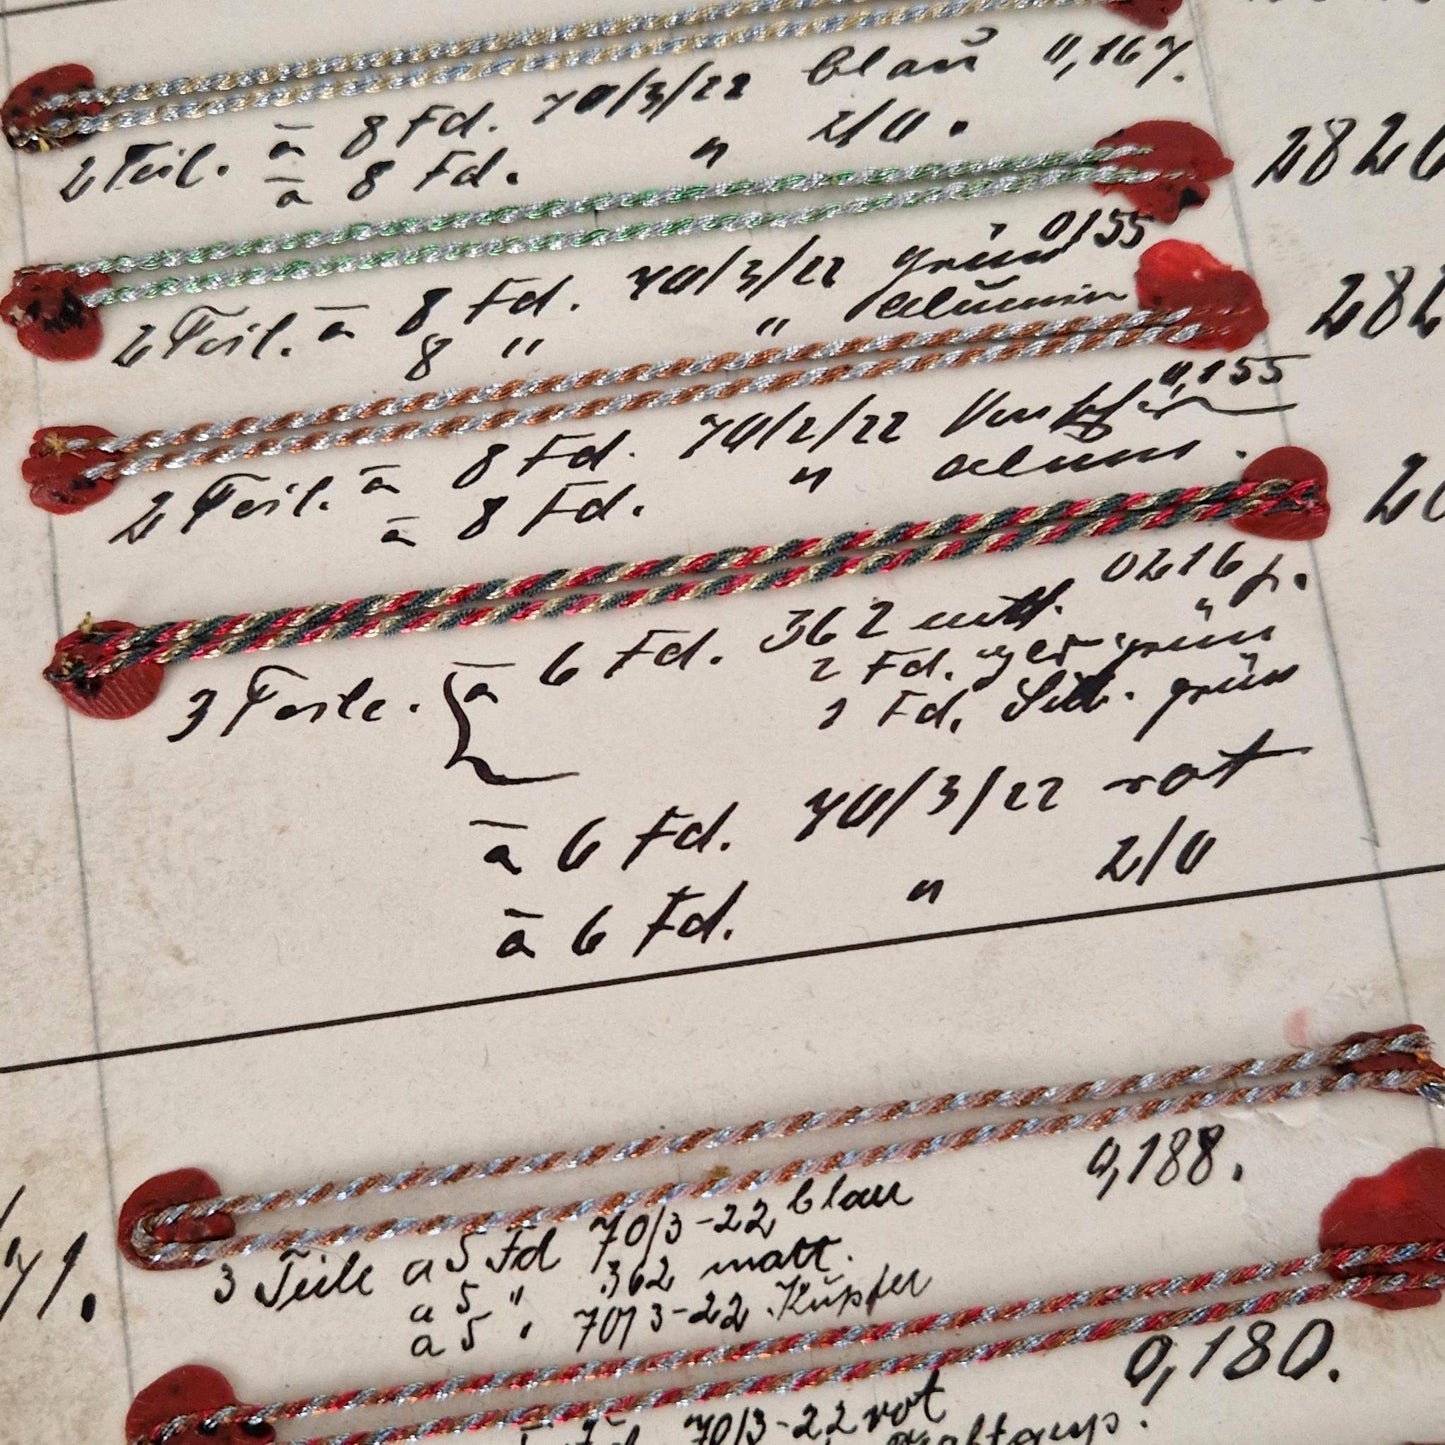 2 Teil. à 8 Fd. 70/3/22 blau 0,167.
à 8 Fd. " 2/0.
282
2 Teil. à 8 Fd. 70/3/22 grün 0,155
8 " " Alumin
282
2 Teil. à 8 Fd. 70/2/22 Kupfer 0,155
à 8 Fd. " Alum.
2
3 Teile. à 6 Fd. 362 matt. 0216
2 Fd. grün
Fd. grün
à 6 Fd. 70/3/22 rot
à 6 Fd. " 2/0
0,188.
71.
3 Teile a 5 Fd 70/3-22 blau
a 5 " 362 matt.
a 5 " 70/3-22 Kupfer
0,180.
Fd. 70/3-22 rot